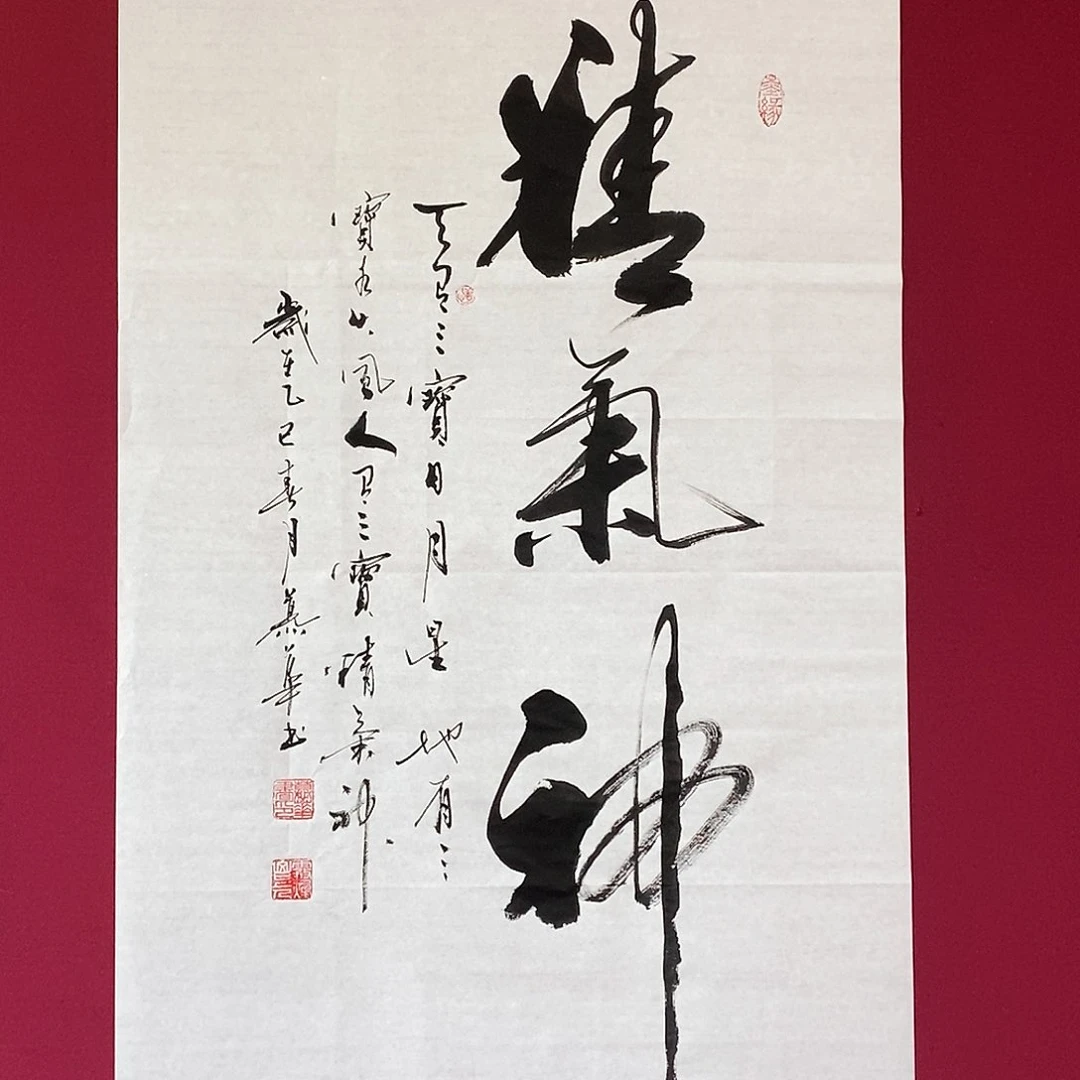 精氣神
天有三寶日月星 地有三
寶水火風人有三寶精氣神
歲在乙巳春月慕華書